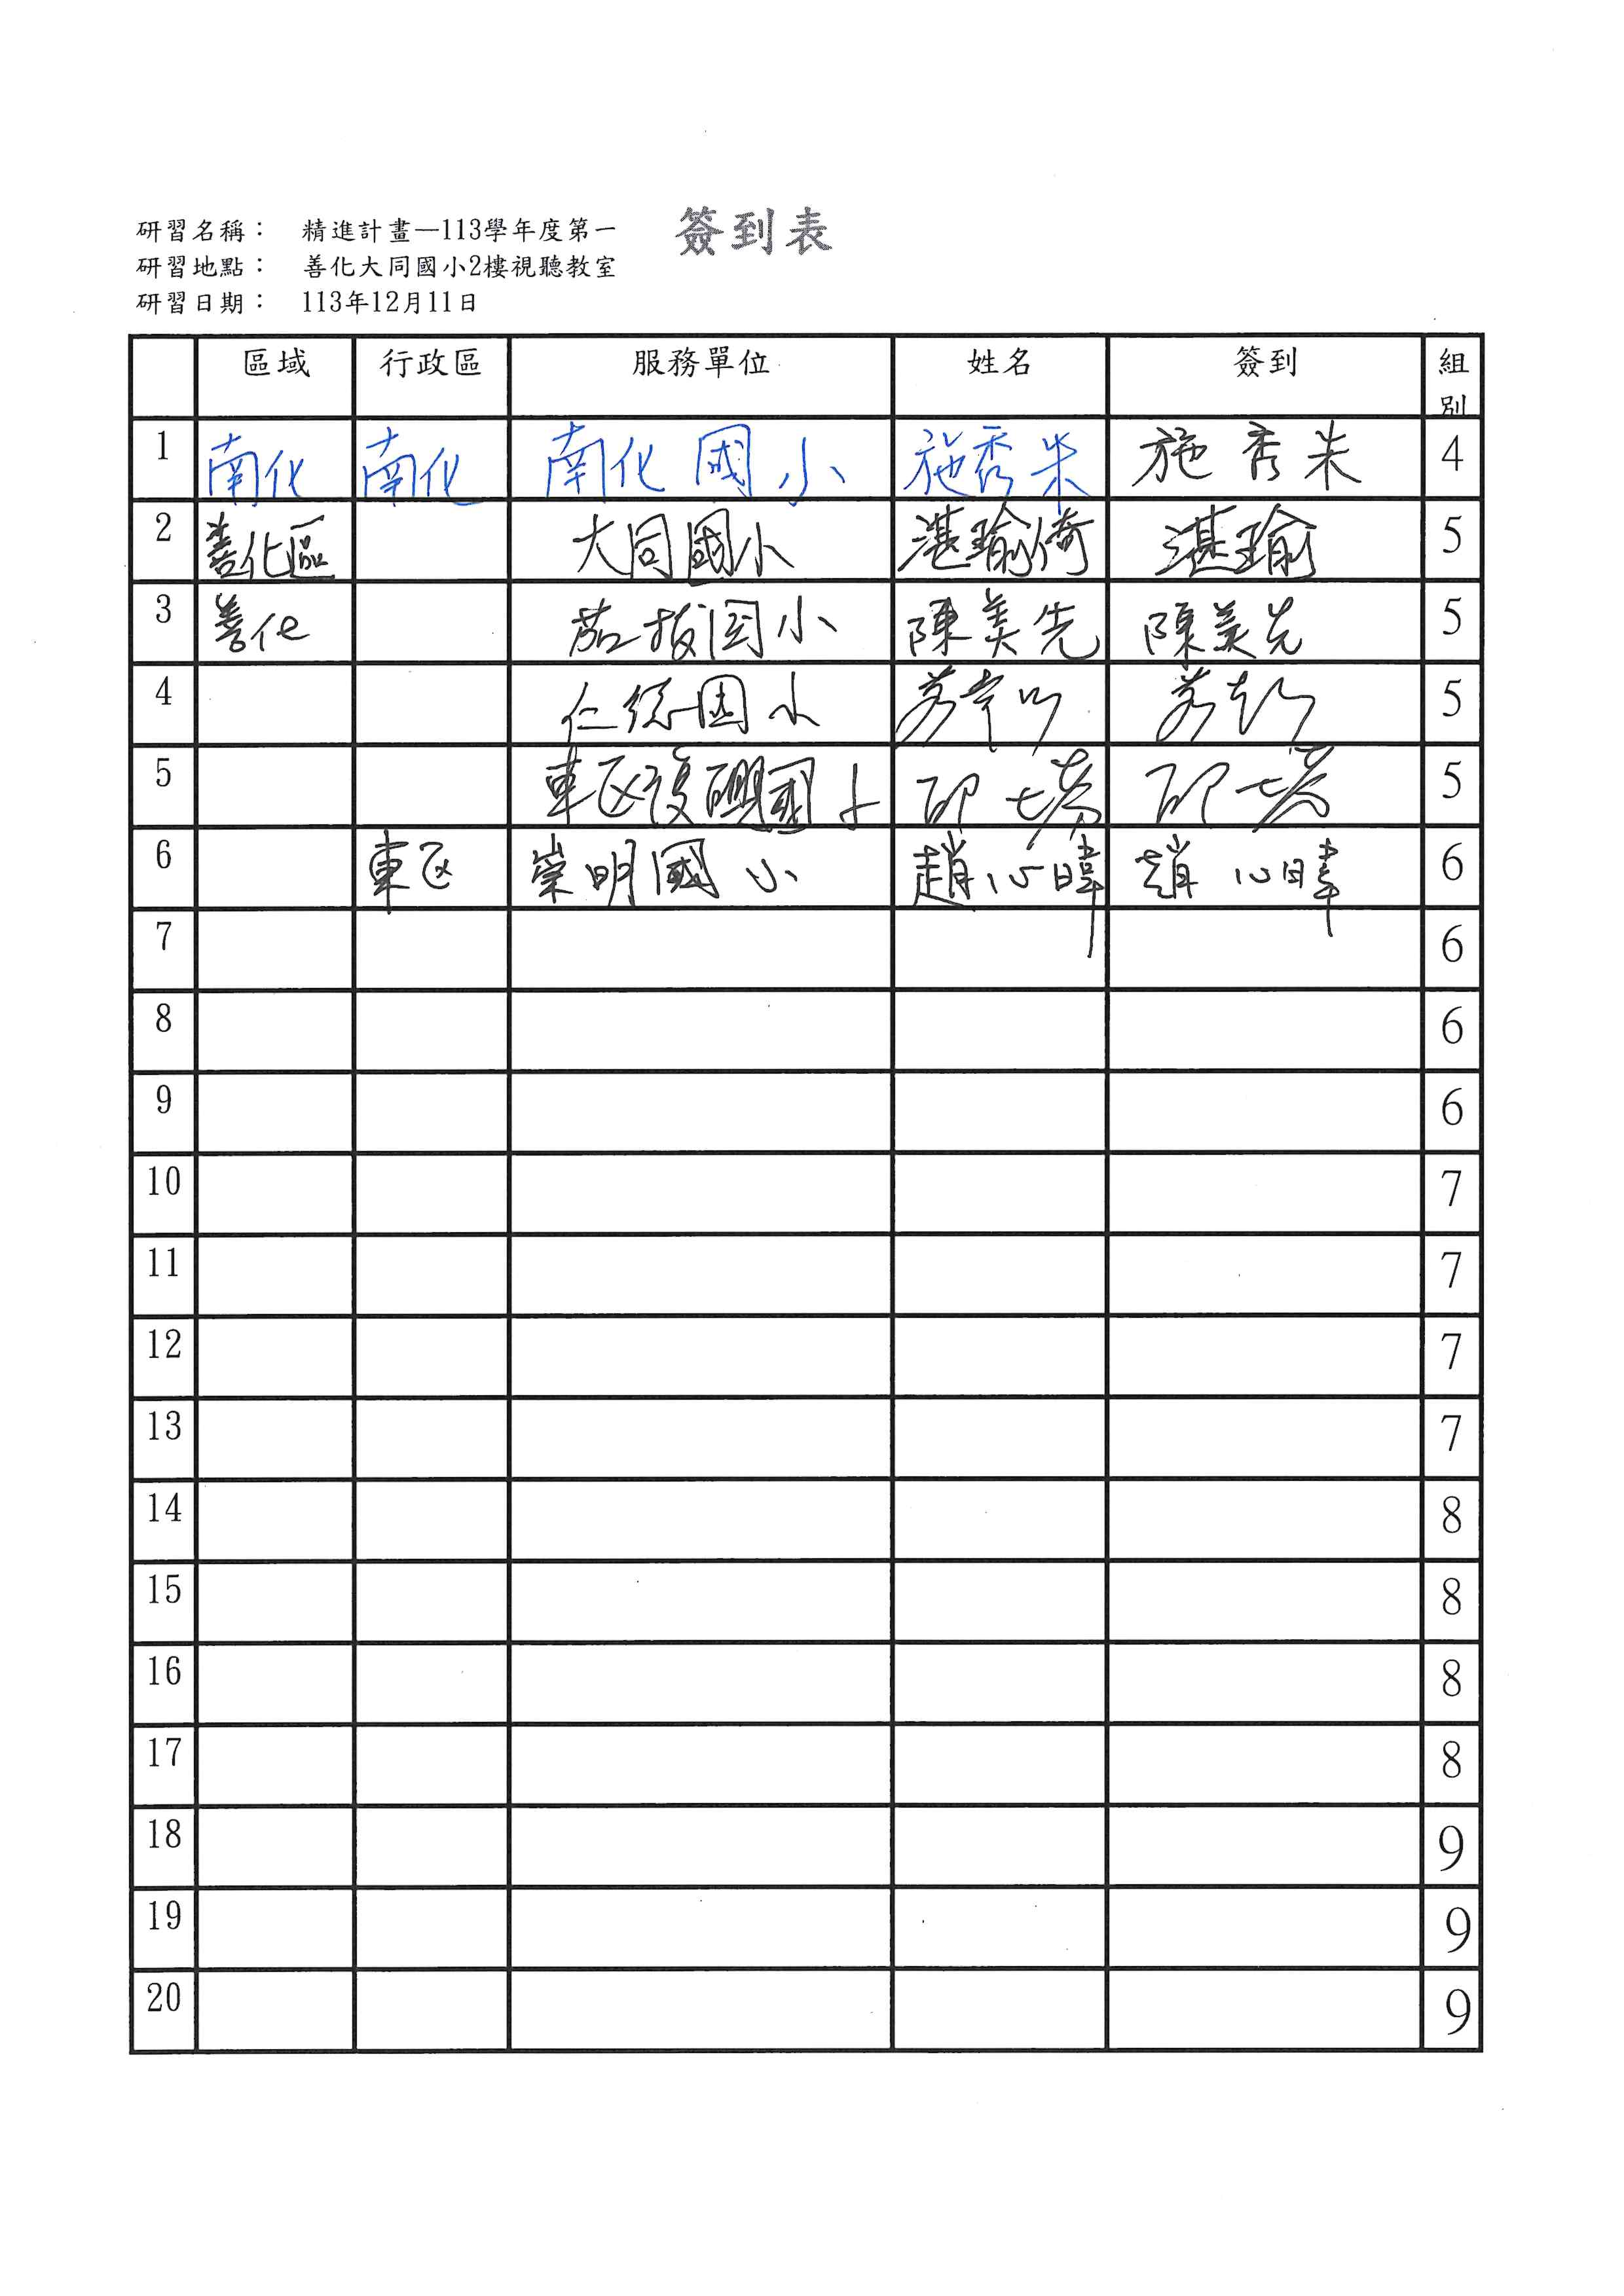 簽到表
研習名稱： 精進計畫—113學年度第一
研習地點： 善化大同國小2樓視聽教室
研習日期： 113年12月11日
區域 行政區 服務單位 姓名 簽到 組別
1 南化 南化 南化國小 施秀朱 施秀朱 4
2 善化區 大同國小 湛瑜倚 湛瑜 5
3 善化 茄拔国小 陳美先 陳美先 5
4 仁德国小 5
5 東区復興國小 邱 邱 5
6 東区 崇明國小 趙心暐 趙心暐 6
7 6
8 6
9 6
10 7
11 7
12 7
13 7
14 8
15 8
16 8
17 8
18 9
19 9
20 9